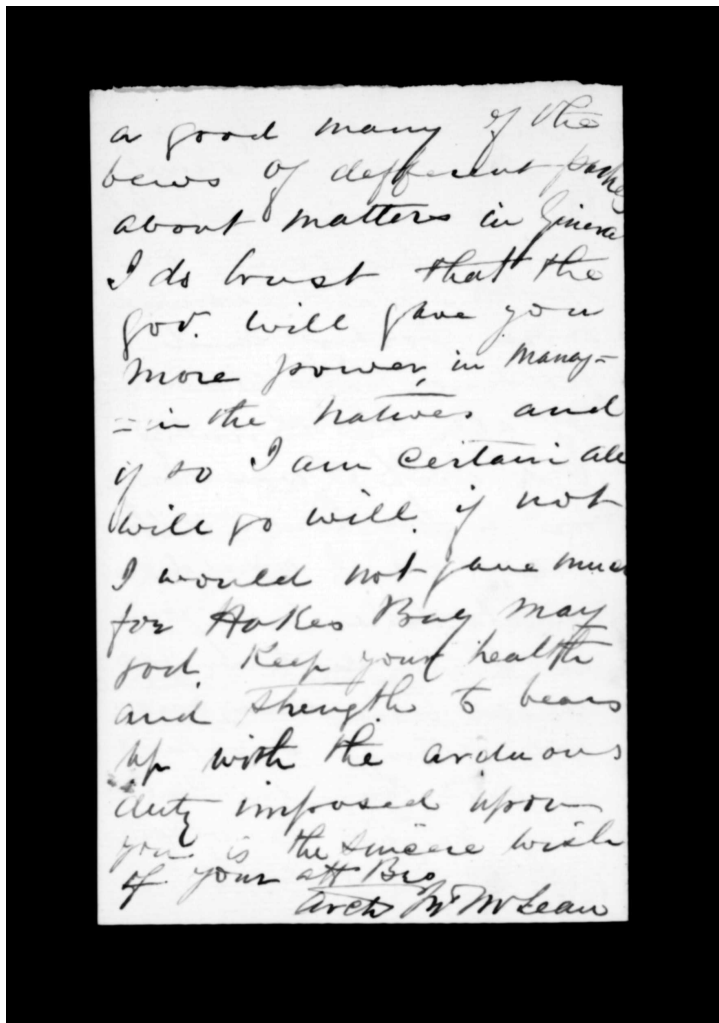 a good many of the
bews of defferent
about matters in Ginera
I do trust that the
gov. will gave you
more power, in manag=
=in the natives and
if so I am certain all
will go will. if not
I would not gave much
for Hakes Bay may
god. Keep your health
and strength to bear
up with the arduous
duty imposed upon
you is the sincere wish
of your aff Bro
Archd McLean